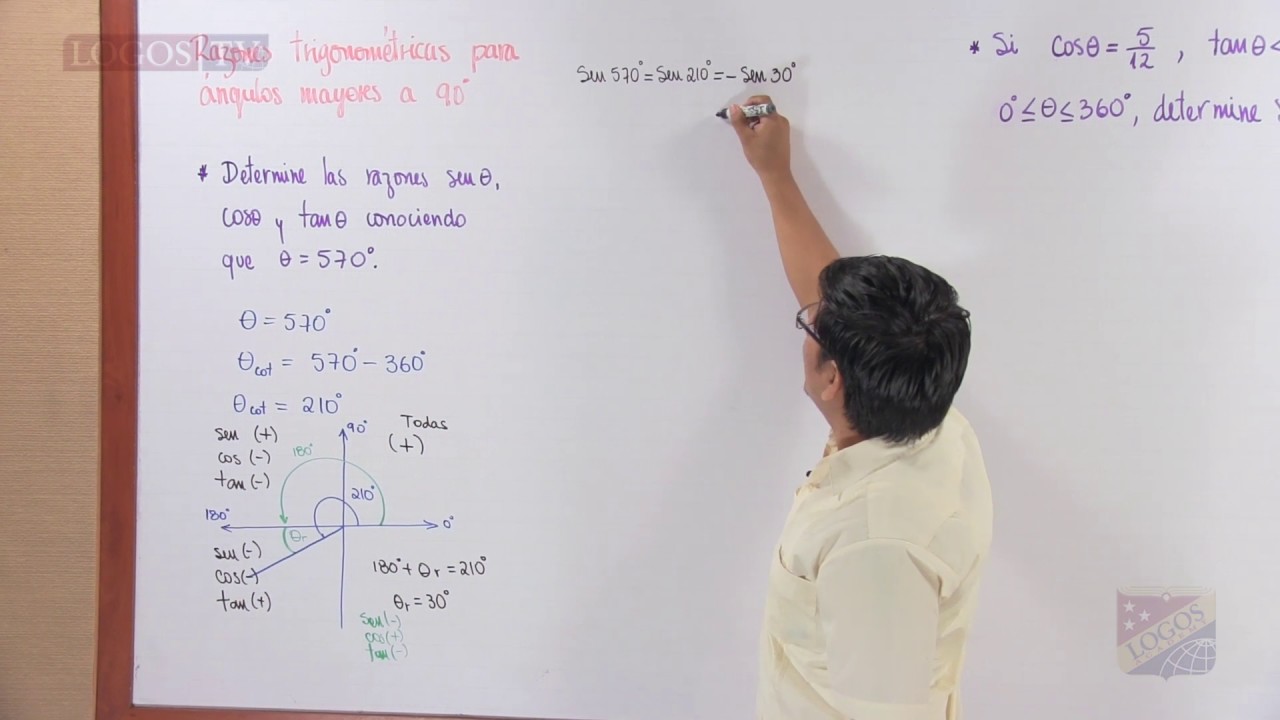 LOGOS TV
Razones trigonométricas para
ángulos mayores a 90°
* Determine las razones sen θ,
cos θ y tan θ conociendo
que θ = 570°.
θ = 570°
θcot = 570° − 360°
θcot = 210°
sen (+)
cos (−)
tan (−)
Todas
(+)
90°
180°
210°
180°
0°
θr
sen (−)
cos (−)
tan (+)
180° + θr = 210°
θr = 30°
sen (−)
cos (+)
tan (−)
Sen 570° = Sen 210° = − Sen 30°
* Si cos θ = 5/12 , tan θ <
0° ≤ θ ≤ 360°, determine
LOGOS